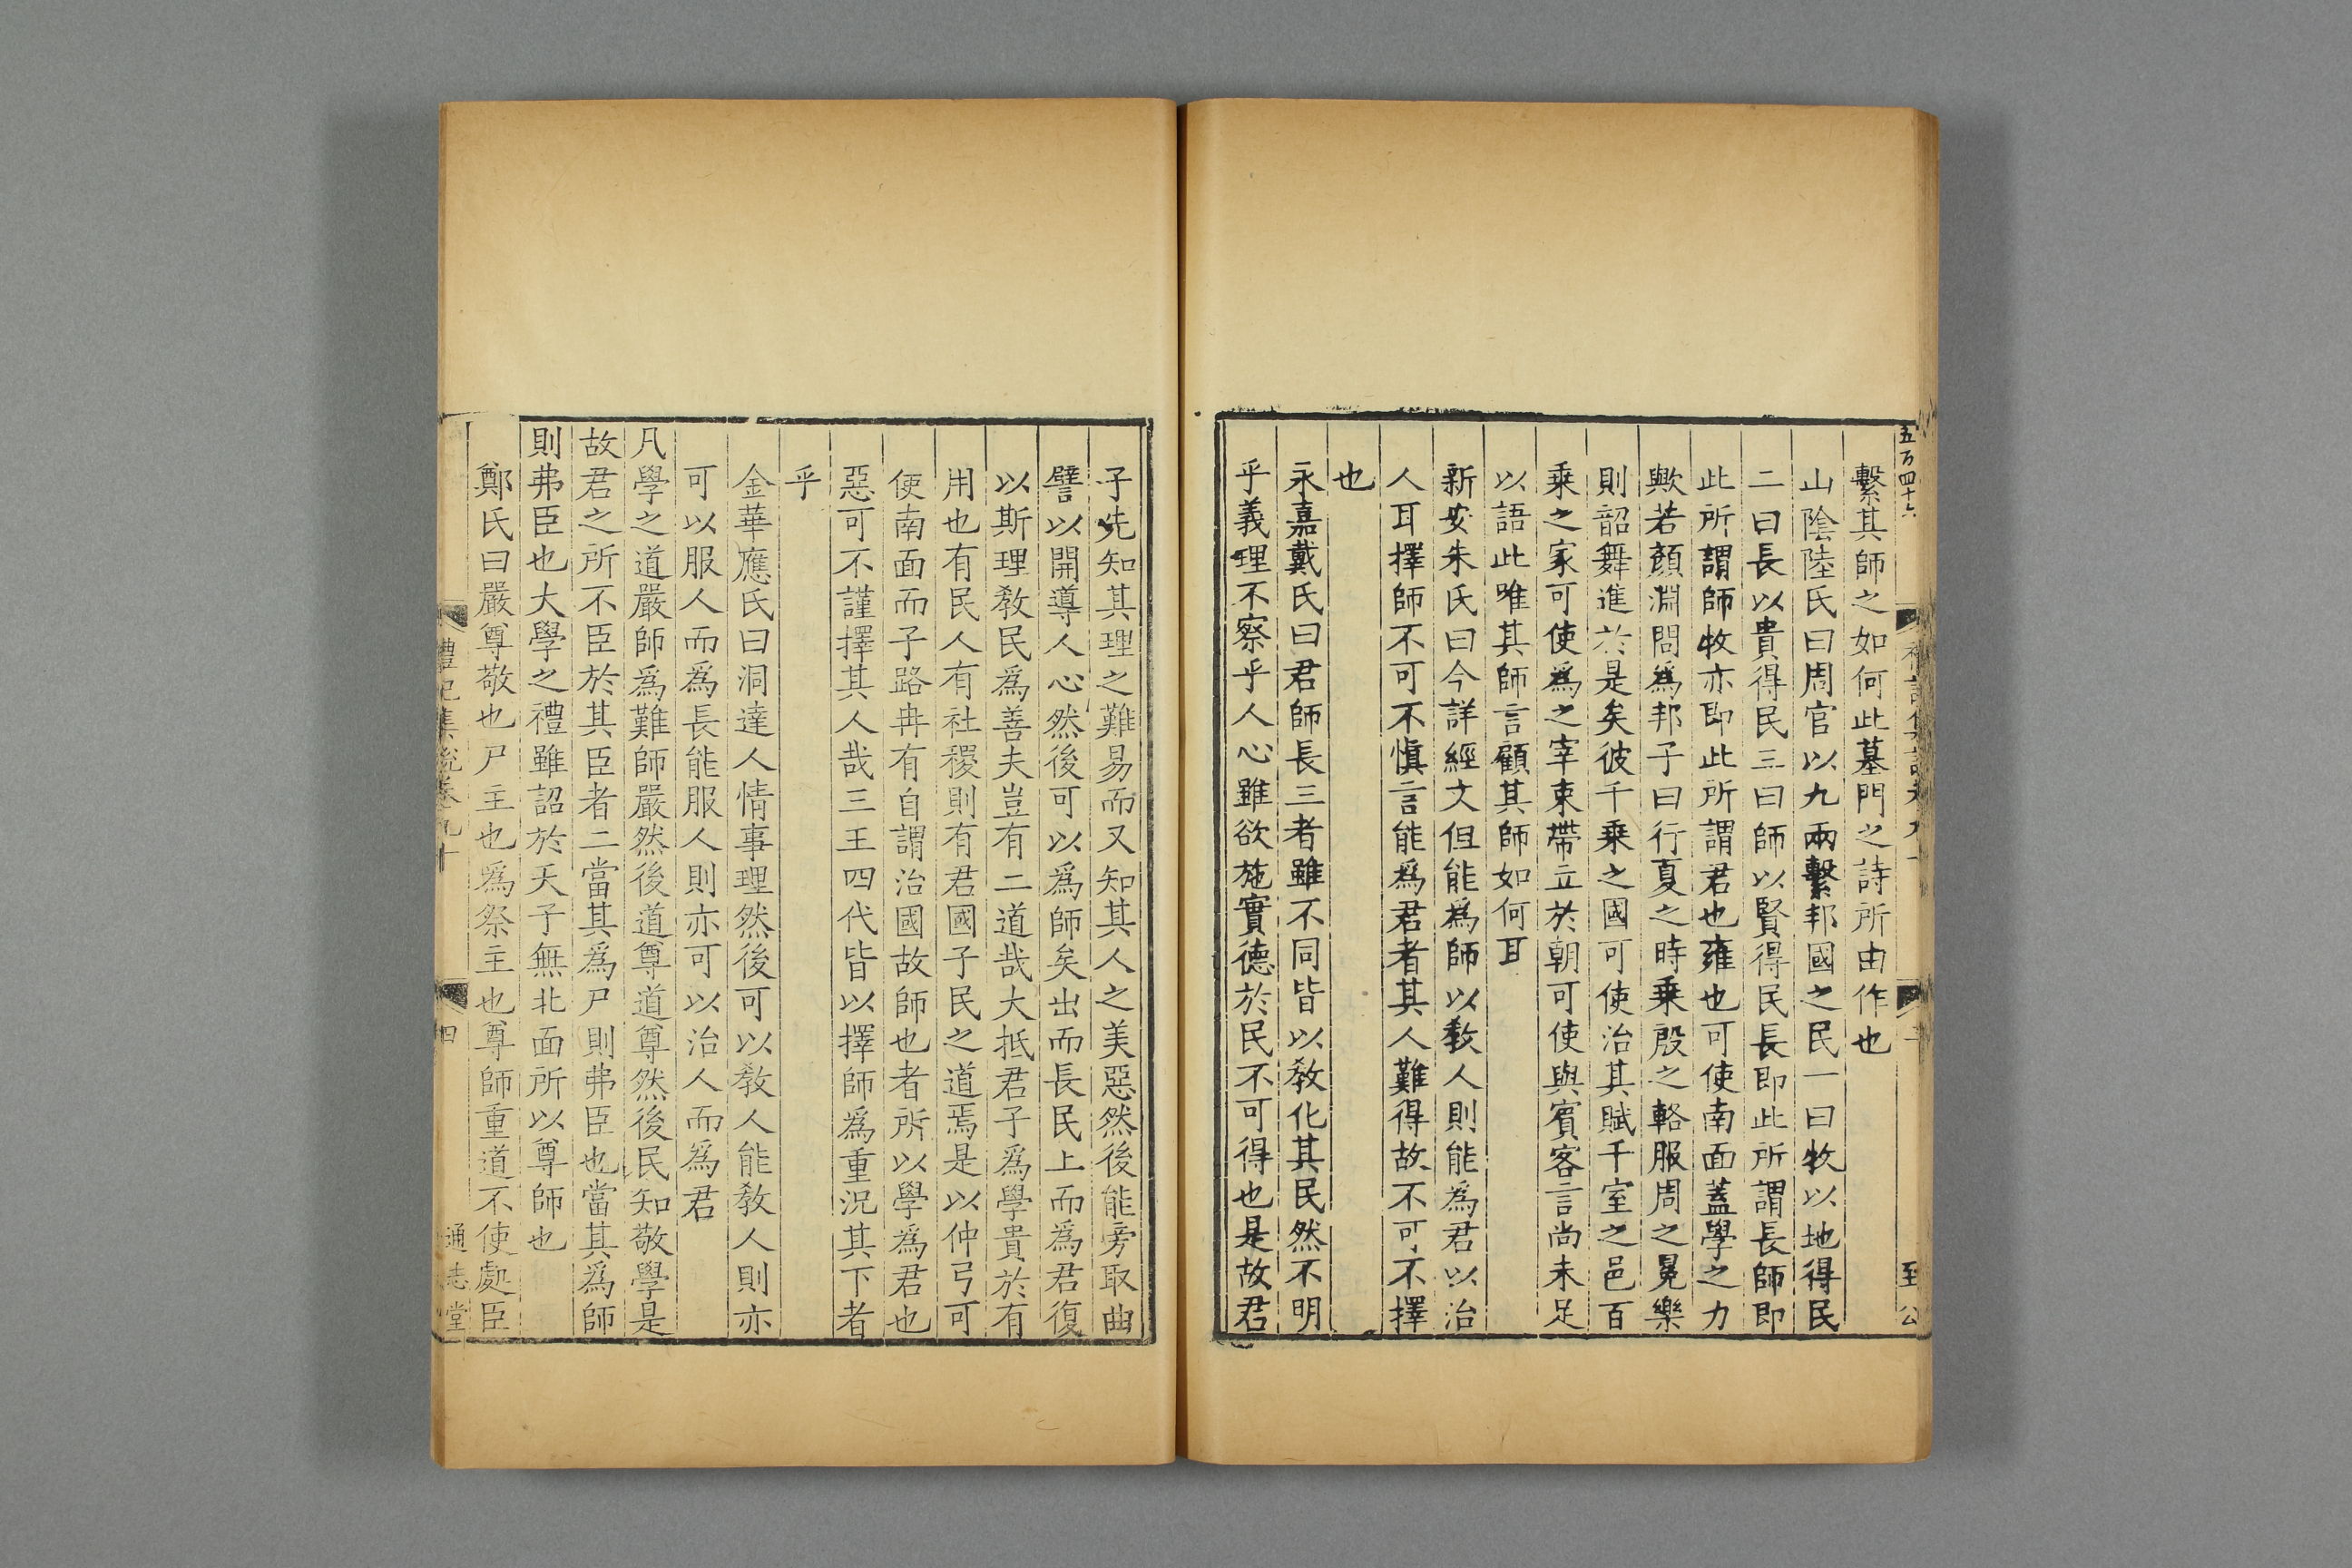 五百四十六
繫其師之如何此墓門之詩所由作也
山陰陸氏曰周官以九兩繫邦國之民一曰牧以地得民
二曰長以貴得民三曰師以賢得民長即此所謂長師即
此所謂師牧亦即此所謂君也雍也可使南面蓋學之力
歟若顏淵問爲邦子曰行夏之時乗殷之輅服周之冕樂
則韶舞進於是矣彼千乗之國可使治其賦千室之邑百
乗之家可使爲之宰束帶立於朝可使與賓客言尚未足
以語此唯其師言顧其師如何耳
新安朱氏曰今詳經文但能爲師以教人則能爲君以治
人耳擇師不可不慎言能爲君者其人難得故不可不擇
也
永嘉戴氏曰君師長三者雖不同皆以教化其民然不明
乎義理不察乎人心雖欲施實德於民不可得也是故君
子先知其理之難易而又知其人之美惡然後能旁取曲
譬以開導人心然後可以爲師矣出而長民上而爲君復
以斯理教民爲善夫豈有二道哉大抵君子爲學貴於有
用也有民人有社稷則有君國子民之道焉是以仲弓可
使南面而子路冉有自謂治國故師也者所以學爲君也
惡可不謹擇其人哉三王四代皆以擇師爲重況其下者
乎
金華應氏曰洞達人情事理然後可以教人能教人則亦
可以服人而爲長能服人則亦可以治人而爲君
凡學之道嚴師爲難師嚴然後道尊道尊然後民知敬學是
故君之所不臣於其臣者二當其爲尸則弗臣也當其爲師
則弗臣也大學之禮雖詔於天子無北面所以尊師也
鄭氏曰嚴尊敬也尸主也爲祭主也尊師重道不使處臣
禮記集說卷九十
四
通志堂